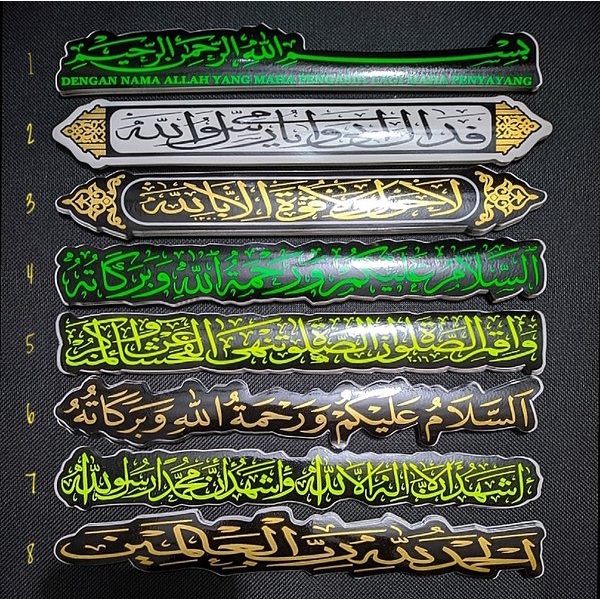 1
بسم الله الرحمن الرحيم
DENGAN NAMA ALLAH YANG MAHA PENYAYANG
2
فداك ابي وامي يا رسول الله
3
لا حول ولا قوة إلا بالله
4
السلام عليكم ورحمة الله وبركاته
5
واقم الصلوة ان الصلوة تنهى عن الفحشاء والمنكر
6
السلام عليكم ورحمة الله وبركاته
7
اشهد ان لا اله الا الله واشهد ان محمدا رسول الله
8
الحمد لله رب العالمين